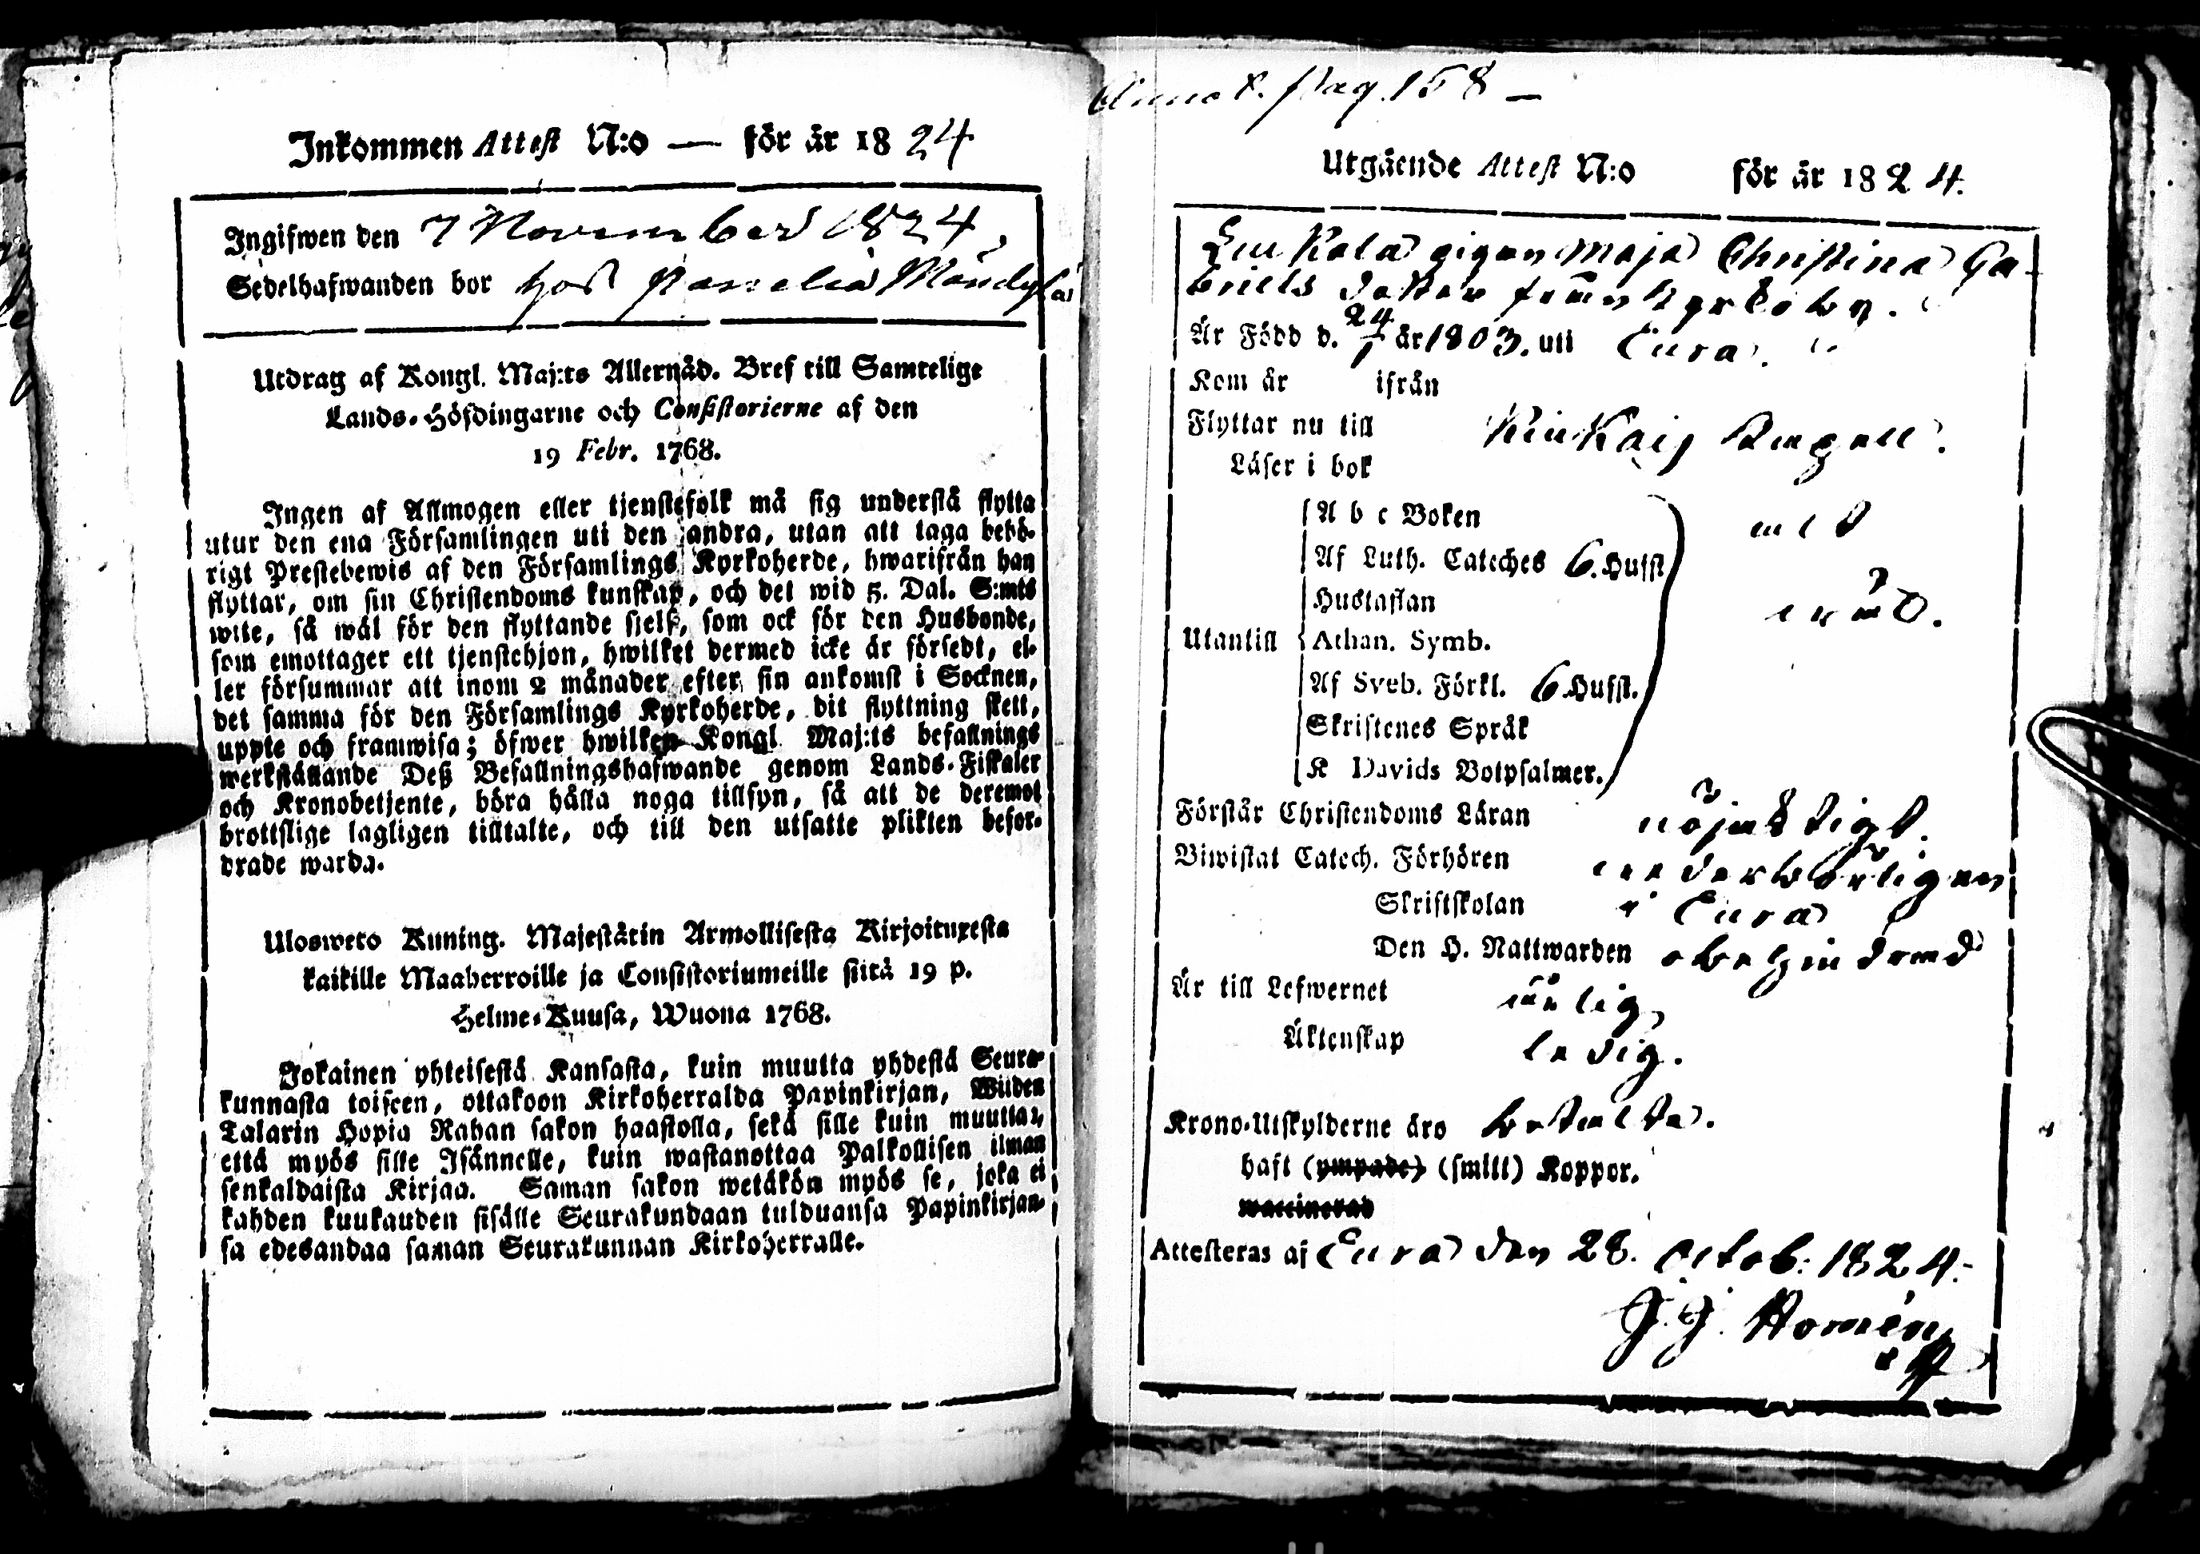 Inkommen Attest N:o — för år 1824
Ingifwen den 7 November 1824.
Sedelhafwanden bor hos
Utdrag af Kongl. Maj:ts Allernåd. Bref till Samtelige
Lands-Höfdingarne och Consistorierne af den
19 Febr. 1768.
Ingen af Allmogen eller tjenstefolk må sig understå flytta
utur den ena Församlingen uti den andra, utan att taga behö-
rigt Prestebewis af den Församlings Kyrkoherde, hwarifrån han
flyttar, om sin Christendoms kunskap, och det wid 5. Dal. S:mts
wite, så wäl för den flyttande sjelf, som ock för den Husbonde,
som emottager ett tjenstehjon, hwilket dermed icke är försedt, el-
ler försummar att inom 2 månader efter sin ankomst i Socknen,
det samma för den Församlings Kyrkoherde, dit flyttning skett,
uppte och framwisa; öfwer hwilken Kongl. Maj:ts befallnings
werkställande Deß Befallningshafwande genom Lands-Fiskaler
och Kronobetjente, böra hålla noga tillsyn, så att de deremot
brottslige lagligen tilltalte, och till den utsatte plikten befor-
drade warda.
Ulosweto Kuning. Majestätin Armollisesta Kirjoituxesta
kaikille Maaherroille ja Consistoriumeille siitä 19 p.
Helme-Kuusa, Wuona 1768.
Jokainen yhteisestä Kansasta, kuin muutta yhdestä Seura-
kunnasta toiseen, ottakoon Kirkoherralda Papinkirjan, Wiiden
Talarin Hopia Rahan sakon haastolla, sekä sille kuin muuttaa,
että myös sille Isännelle, kuin wastanottaa Palkollisen ilman
senkaldaista Kirjaa. Saman sakon wetäkön myös se, joka ei
kahden kuukauden sisälle Seurakundaan tulduansa Papinkirjan-
sa edesandaa saman Seurakunnan Kirkoherralle.
Pag. 158 —
Utgående Attest N:o för år 1824.
pigan Maja Christina Ga-
briels dotter från Kyrkoby.
Är Född d. 24/1 år 1803. uti Eura.
Kom år ifrån
Flyttar nu till Kiukais Capell.
Läser i bok
Utantill
A b c Boken
Af Luth. Cateches 6. Hufst.
Hustaflan
Athan. Symb.
Af Sveb. Förkl. 6 Hufst.
Skriftenes Språk
K Davids Botpsalmer.
Förstår Christendoms Läran nöjaktigt.
Biwistat Catech. Förhören wederbörligen
Skriftskolan i Eura
Den H. Nattwarden obehindrad
Är till Lefwernet ärlig
Äktenskap ledig.
Krono-Utskylderne äro betalta.
haft (ympade) (smitt) Koppor.
waccinerad
Attesteras af Eura den 28. Octob: 1824.
J. G. Homén